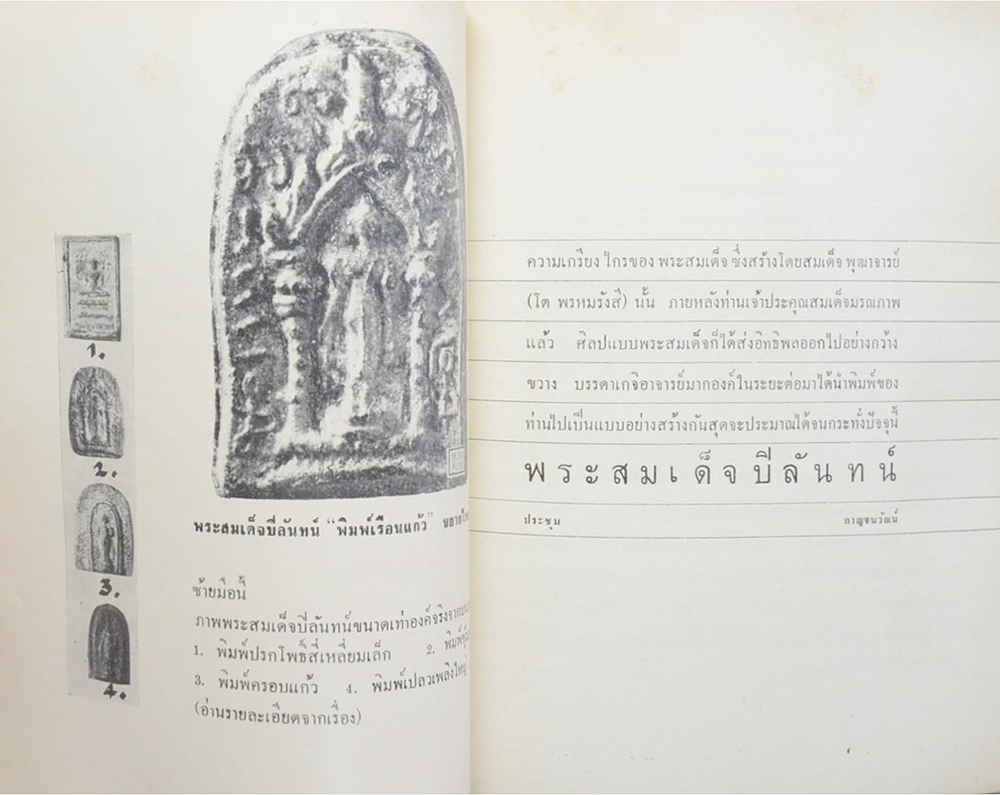 1.
2.
3.
4.
พระสมเด็จปีลันทน์ "พิมพ์เรือนแก้ว"
ซ้ายมือนี้
ภาพพระสมเด็จปีลันทน์ขนาดเท่าองค์จริงจาก
1. พิมพ์ปรกโพธิ์สี่เหลี่ยมเล็ก 2.
3. พิมพ์ครอบแก้ว 4. พิมพ์เปลวเพลิงใหญ่
(อ่านรายละเอียดจากเรื่อง)
ความเกรียงไกรของ พระสมเด็จ ซึ่งสร้างโดยสมเด็จ พุฒาจารย์
(โต พรหมรังสี) นั้น ภายหลังท่านเจ้าประคุณสมเด็จมรณภาพ
แล้ว ศิลปแบบพระสมเด็จก็ได้ส่งอิทธิพลออกไปอย่างกว้าง
ขวาง บรรดาเกจิอาจารย์มากองค์ในระยะต่อมาได้นำพิมพ์ของ
ท่านไปเป็นแบบอย่างสร้างกันสุดจะประมาณได้จนกระทั่งปัจจุนี้
พระสมเด็จปีลันทน์
ประชุม กาญจนวัฒน์